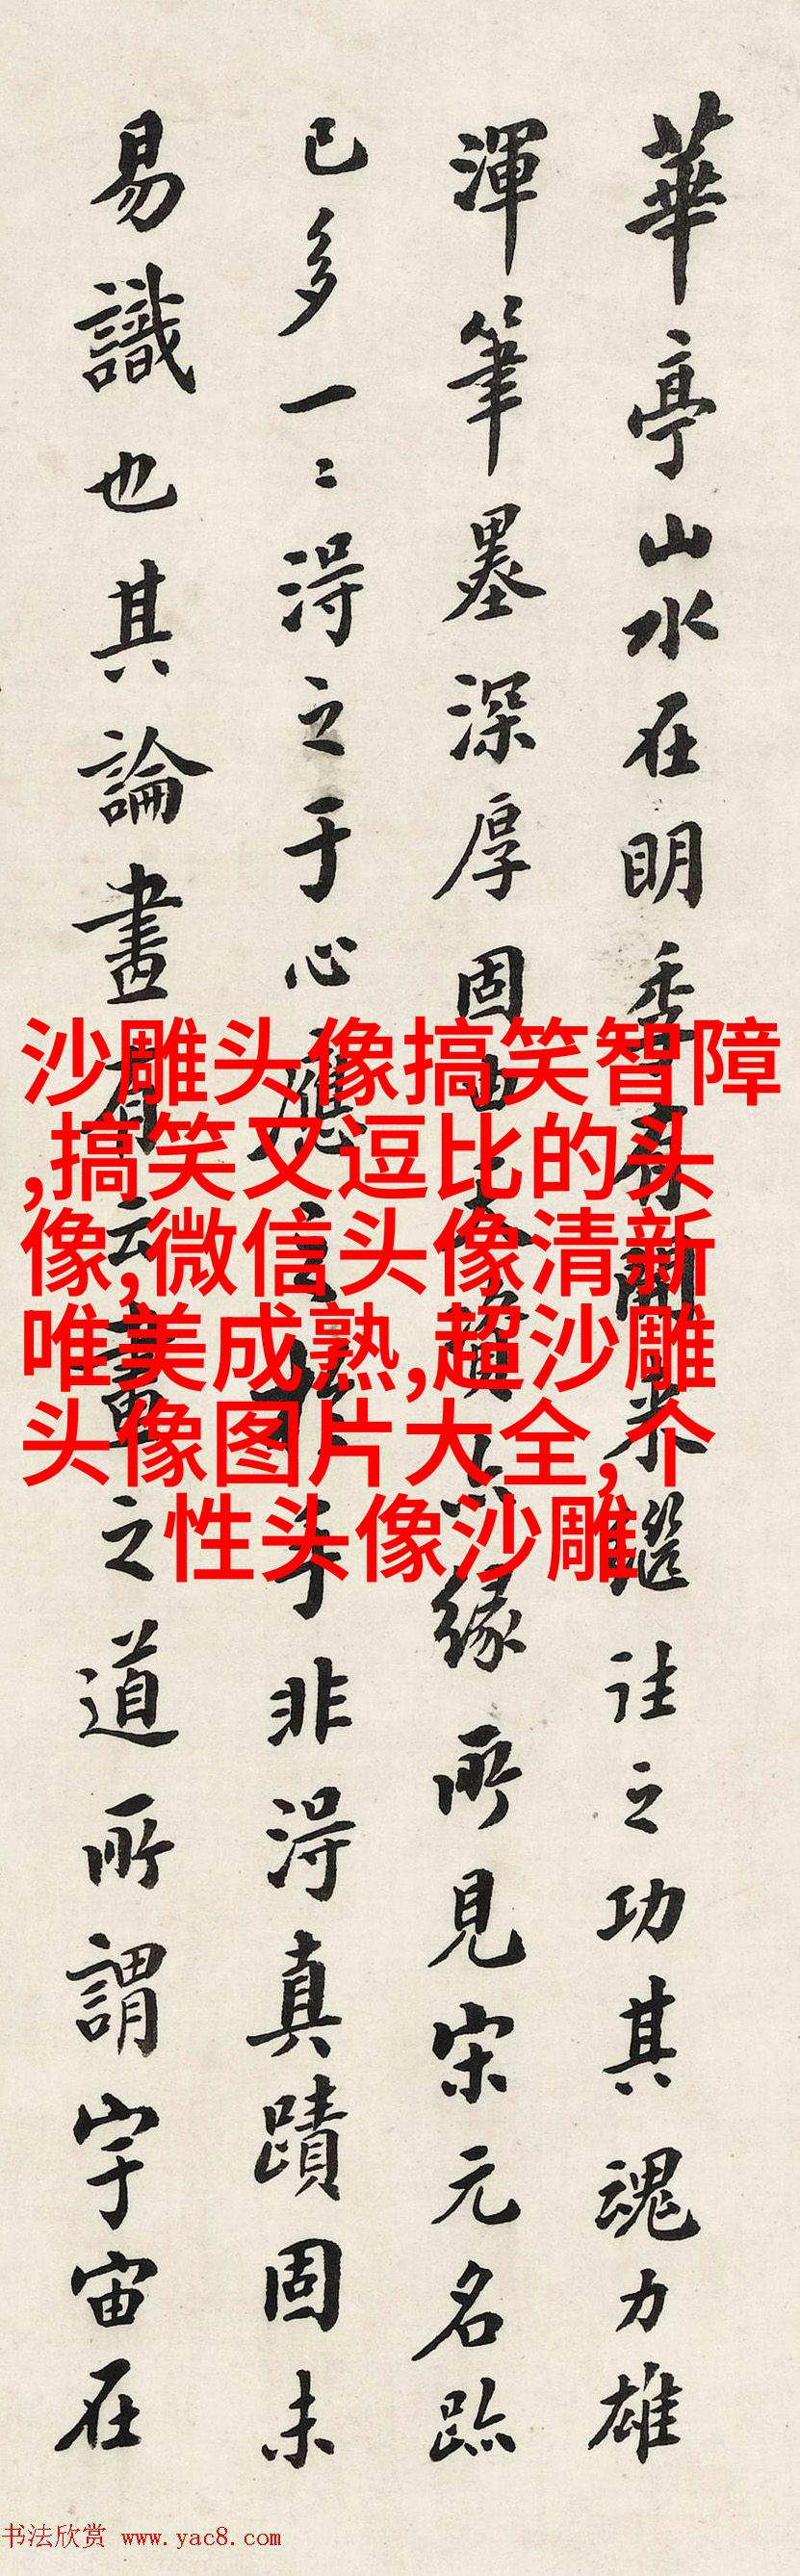 華亭山水在明季有開來繼往之功其魂力雄
渾筆墨深厚固由天資亦緣所見宋元名跡
已多一二得之于心應之於手非得真蹟固未
易識也其論畫有云畫之道所謂宇宙在
沙雕头像搞笑智障
,搞笑又逗比的头
像,微信头像清新
唯美成熟,超沙雕
头像图片大全,个
性头像沙雕
书法欣赏 www.yac8.com